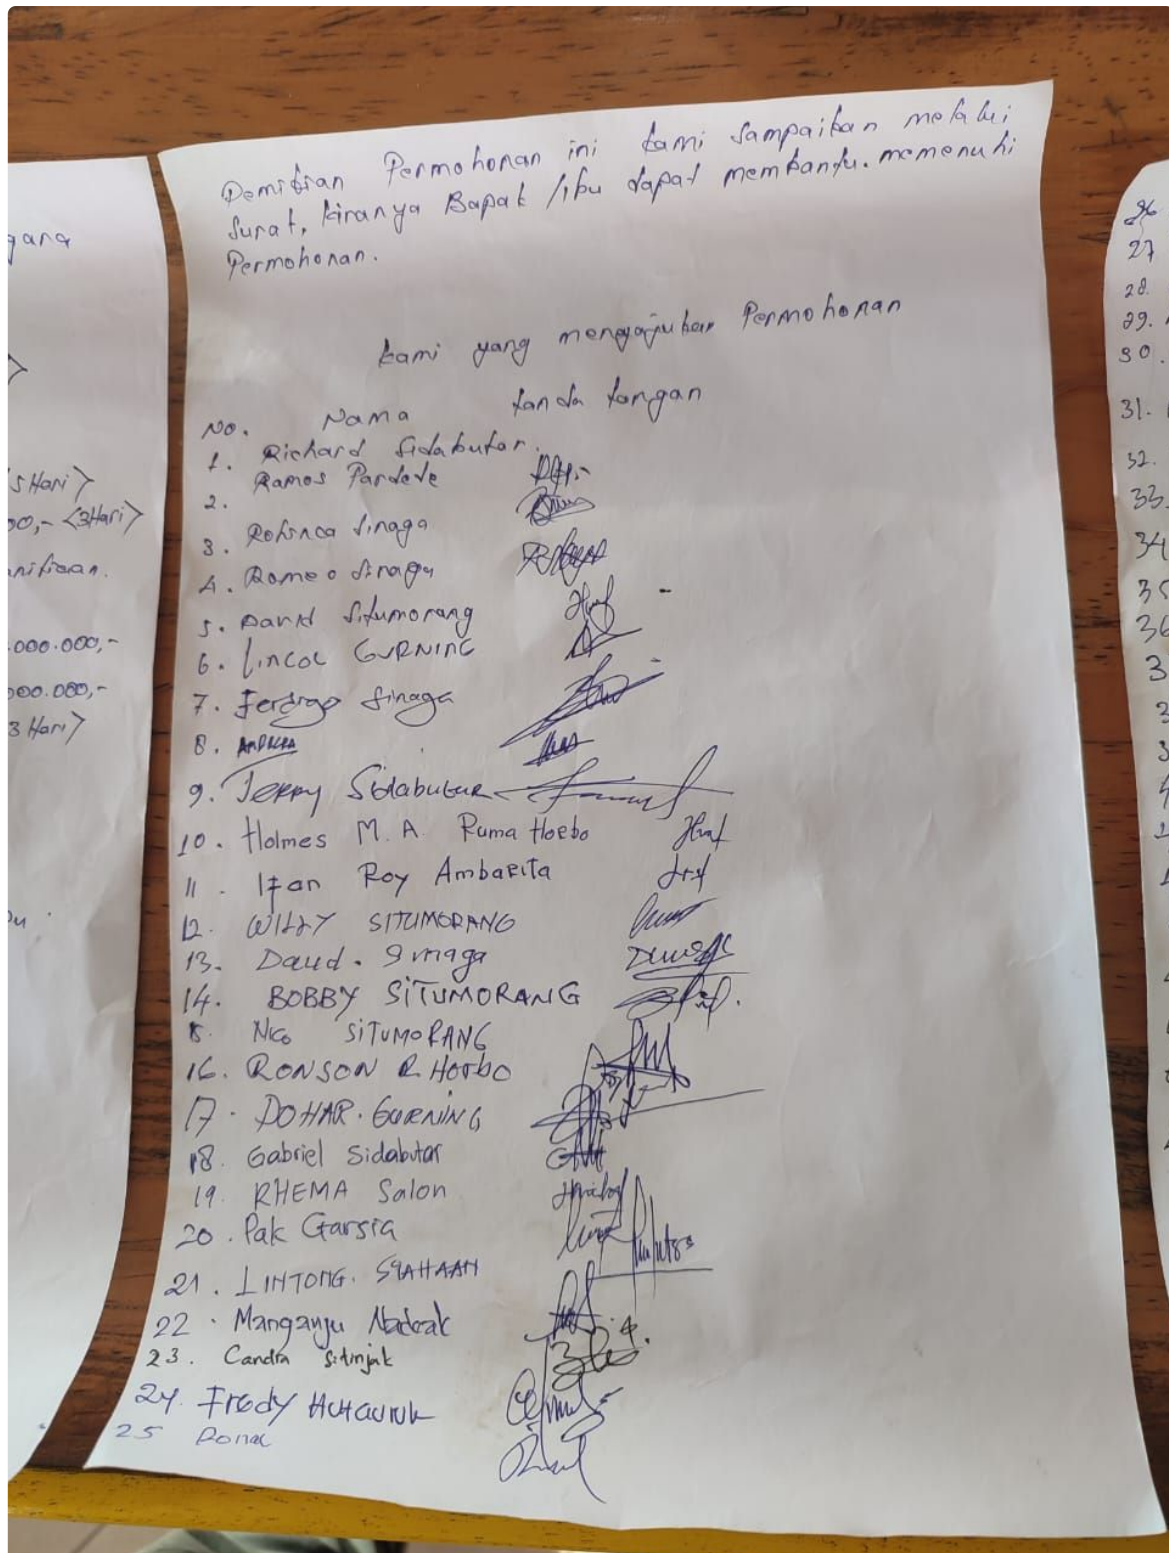 gara
5 Hari>
00,- <3Hari>
.000.000,-
000.000,-
3 Hari>
Demikian Permohonan ini kami sampaikan melalui
Surat, kiranya Bapak /ibu dapat membantu. memenuhi
Permohonan.
kami yang mengajukan Permohonan
No. Nama tanda tangan
1. Richard Sidabutar.
2. Ramos Pardede
3. Sinaga
4. Romeo Sinaga
5. David Situmorang
6. Lincol GURNING
7. Sinaga
8.
9. Jerry Sidabutar
10. Holmes M. A. Ruma Horbo
11. Ifan Roy Ambarita
12. WILLY SITUMORANG
13. Daud. Sinaga
14. BOBBY SITUMORANG
15. Nico SITUMORANG
16. RONSON R. Horbo
17. DOHAR. GURNING
18. Gabriel Sidabutar
19. RHEMA Salon
20. Pak Garsia
21. LINTONG. SIAHAAN
22. Manganju Nadeak
23. Candra Sitinjak
24. Fredy Hutauruk
25
26
27
28.
29.
30.
31.
32.
33.
34
35
36